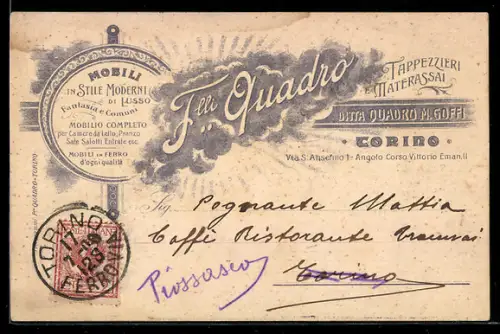 MOBILI
IN STILE MODERNI
DI LUSSO
Fantasia e Comuni
MOBILIO COMPLETO
per Camere da Letto, Pranzo
Sale Salotti Entrate ecc.
MOBILI IN FERRO
d'ogni qualità
F.lli Quadro
TAPPEZZIERI
E MATERASSAI
DITTA QUADRO M. GOFFI
TORINO
Via S. Anselmo 1 - Angolo Corso Vittorio Eman. II
Sig. Pognante Mattia
Caffè Ristorante Tramvai
Torino
Piossasco
TORINO
FERROVIA